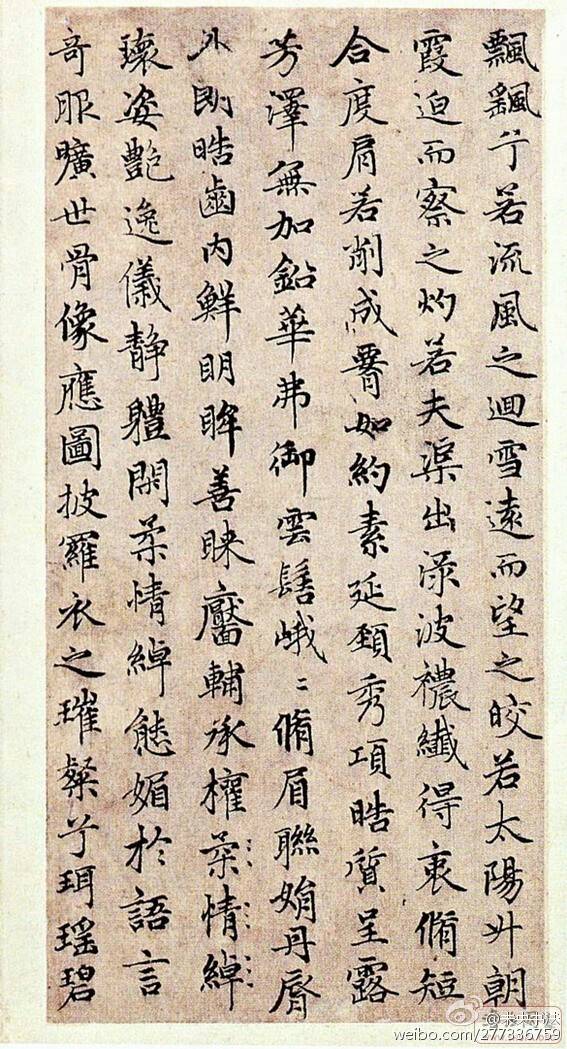 飄飖兮若流風之迴雪遠而望之皎若太陽升朝
霞迫而察之灼若夫渠出淥波襛纖得衷脩短
合度肩若削成腰如約素延頸秀項皓質呈露
芳澤無加鉛華弗御雲髻峨〻脩眉聯娟丹脣
外朗皓齒內鮮明眸善睞靨輔承權柔情綽
瓌姿艷逸儀靜體閑柔情綽態媚於語言
奇服曠世骨像應圖披羅衣之璀粲兮珥瑤碧
weibo.com/277336759